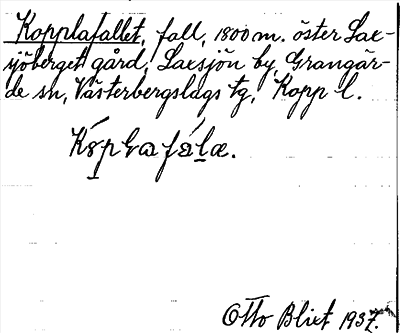 Kopplafallet, fall, 1800 m. öster Lax-
sjöberget gård, Laxsjön by, Grangär-
de sn, Västerbergslags tg, Kopp l.
Otto Blixt 1937.